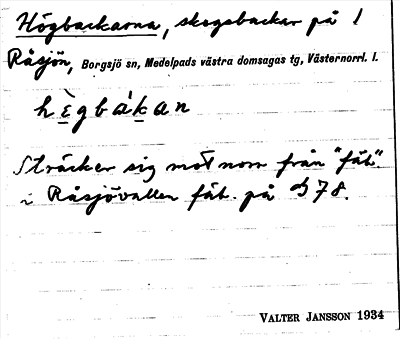 Högbackarna, skogsbackar på 1
Råsjön, Borgsjö sn, Medelpads västra domsagas tg, Västernorrl. l.
hègbákan
Sträcker sig mot norr från "fäb."
i Råsjövallen fäb. på 78.
VALTER JANSSON 1934